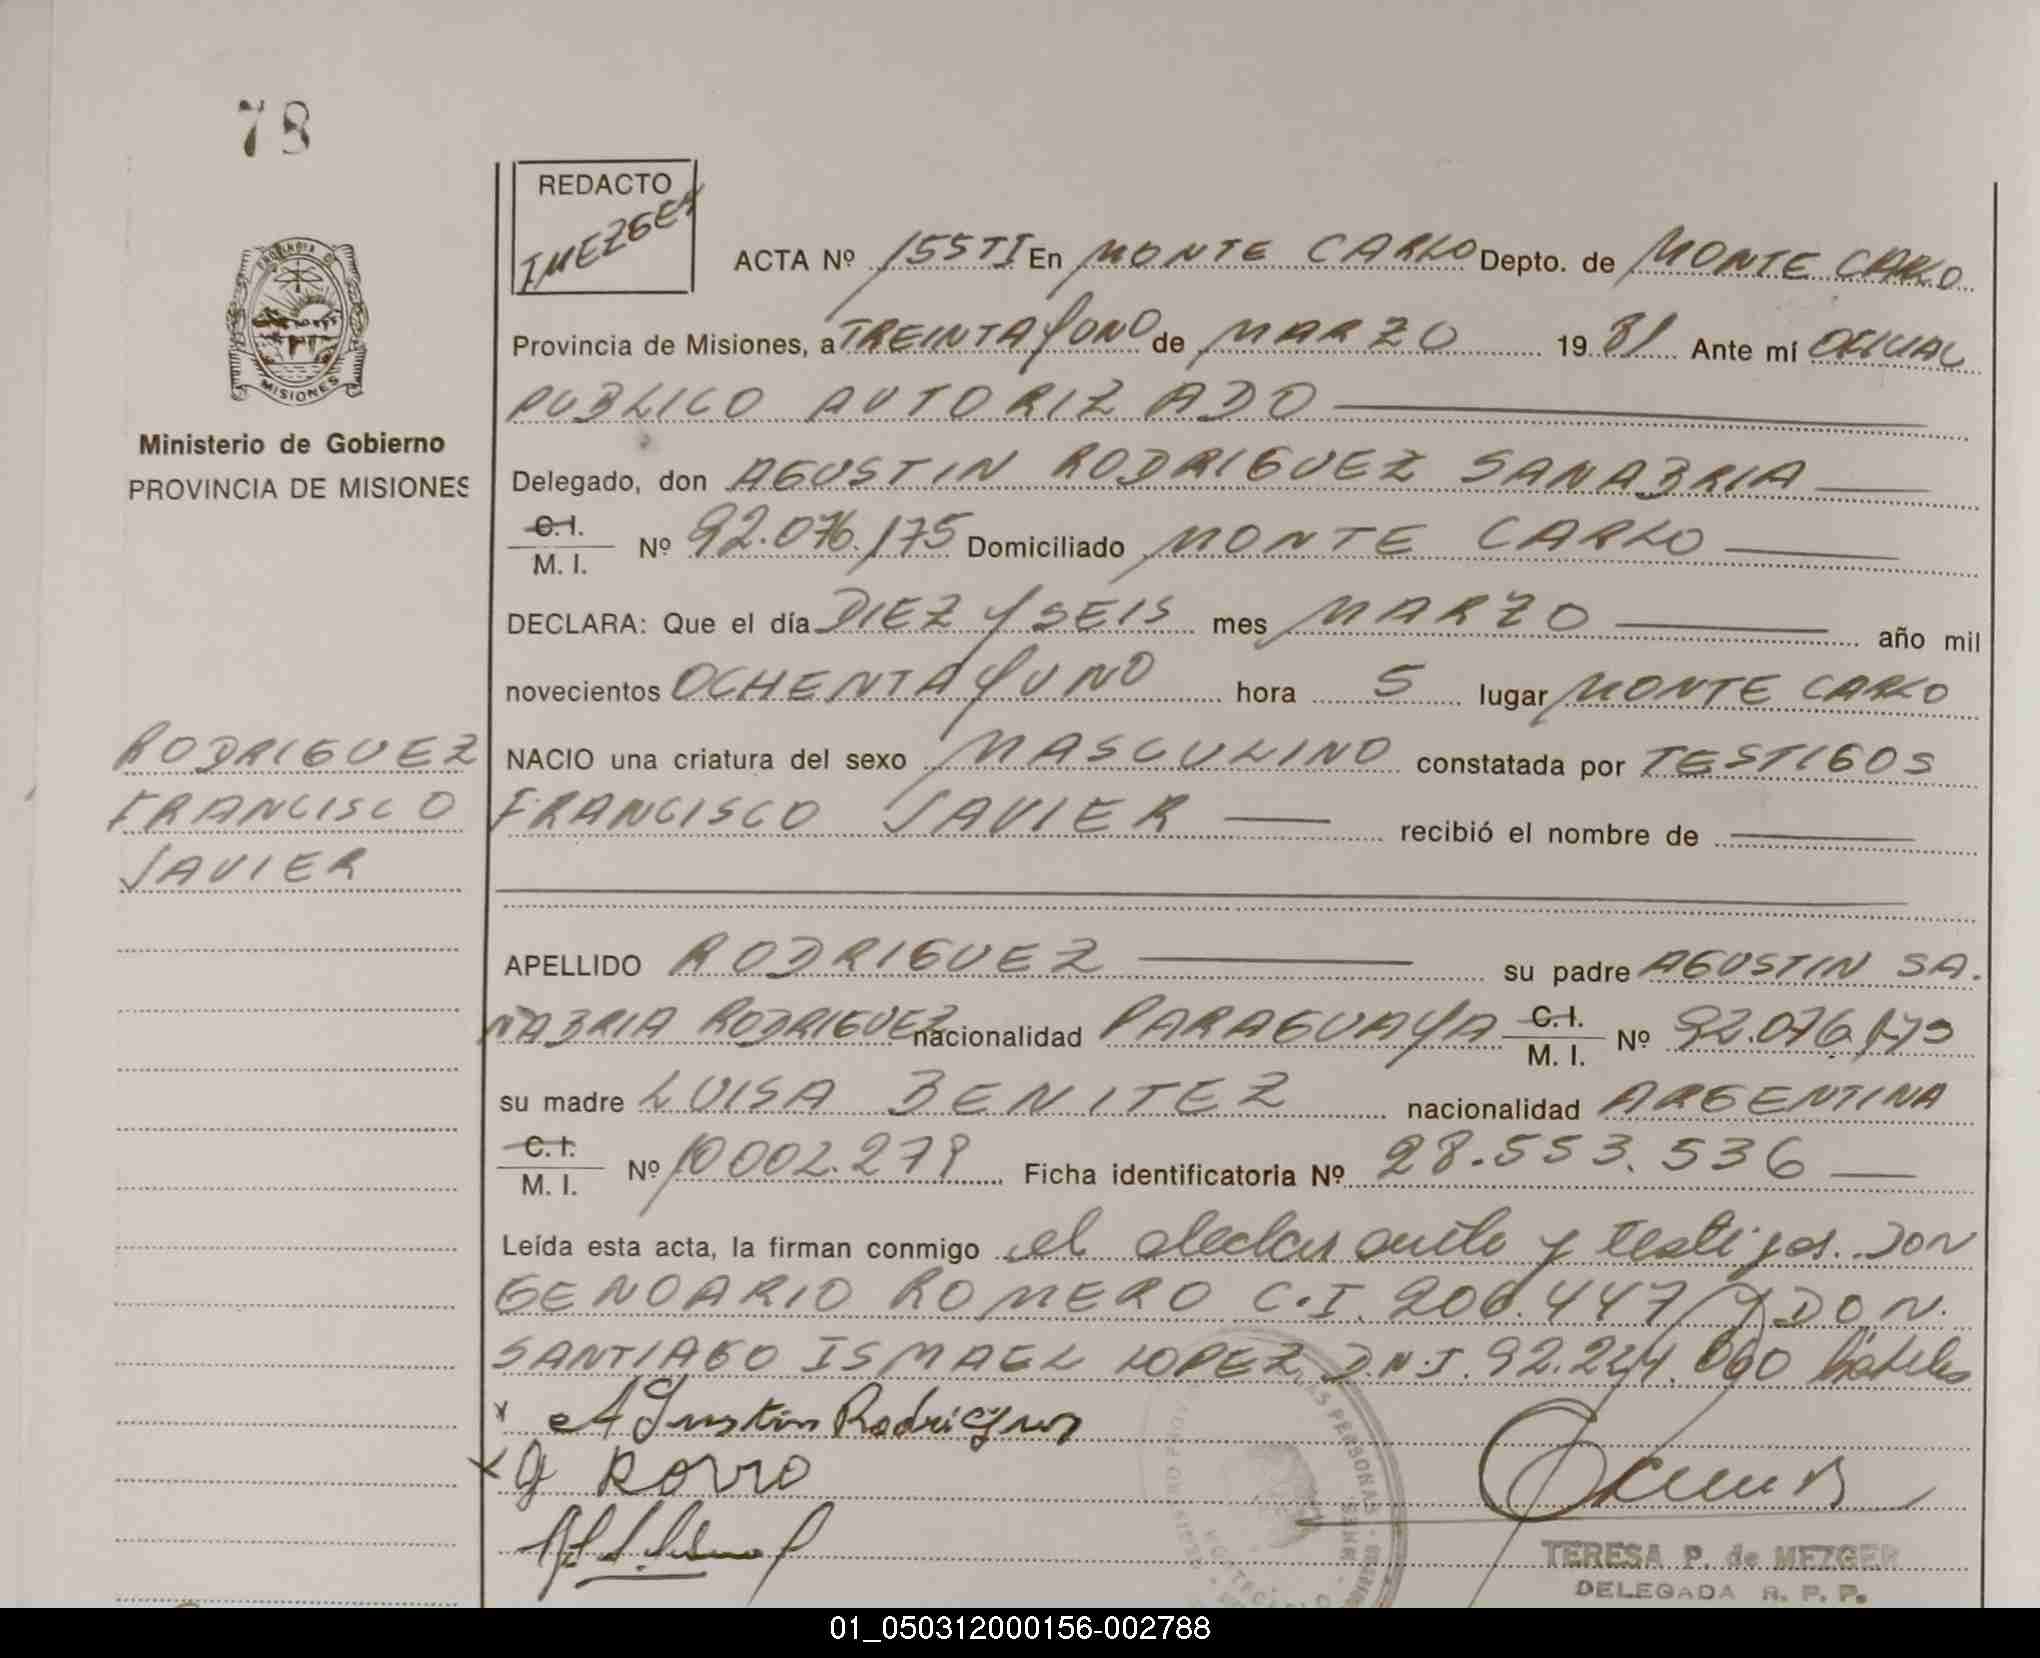 78
REDACTO
ACTA Nº 155TI En MONTE CARLO Depto. de MONTE CARLO
Provincia de Misiones, a TREINTA Y UNO de MARZO 1981 Ante mí OFICIAL
PUBLICO AUTORIZADO
MISIONES
Ministerio de Gobierno
PROVINCIA DE MISIONES
Delegado, don AGUSTIN RODRIGUEZ SANABRIA
C.I.
M. I. Nº 92.076.175 Domiciliado MONTE CARLO
DECLARA: Que el día DIEZ Y SEIS mes MARZO año mil
novecientos OCHENTA Y UNO hora 5 lugar MONTE CARLO
RODRIGUEZ
FRANCISCO
JAVIER
NACIO una criatura del sexo MASCULINO constatada por TESTIGOS
FRANCISCO JAVIER recibió el nombre de
APELLIDO RODRIGUEZ su padre AGUSTIN SA.
NABRIA RODRIGUEZ nacionalidad PARAGUAYA C.I. M. I. Nº 92.076.175
su madre LUISA BENITEZ nacionalidad ARGENTINA
C.I.
M. I. Nº 10002.279 Ficha identificatoria Nº 28.553.536
Leída esta acta, la firman conmigo el declarante y testigos. DON
GENOARIO ROMERO C.I. 206.447 Y DON.
SANTIAGO ISMAEL LOPEZ D.N.I. 92.224.060 hábiles
Agustin Rodrigues
TERESA P. de MEZGER
DELEGADA R. P. P.
01_050312000156-002788